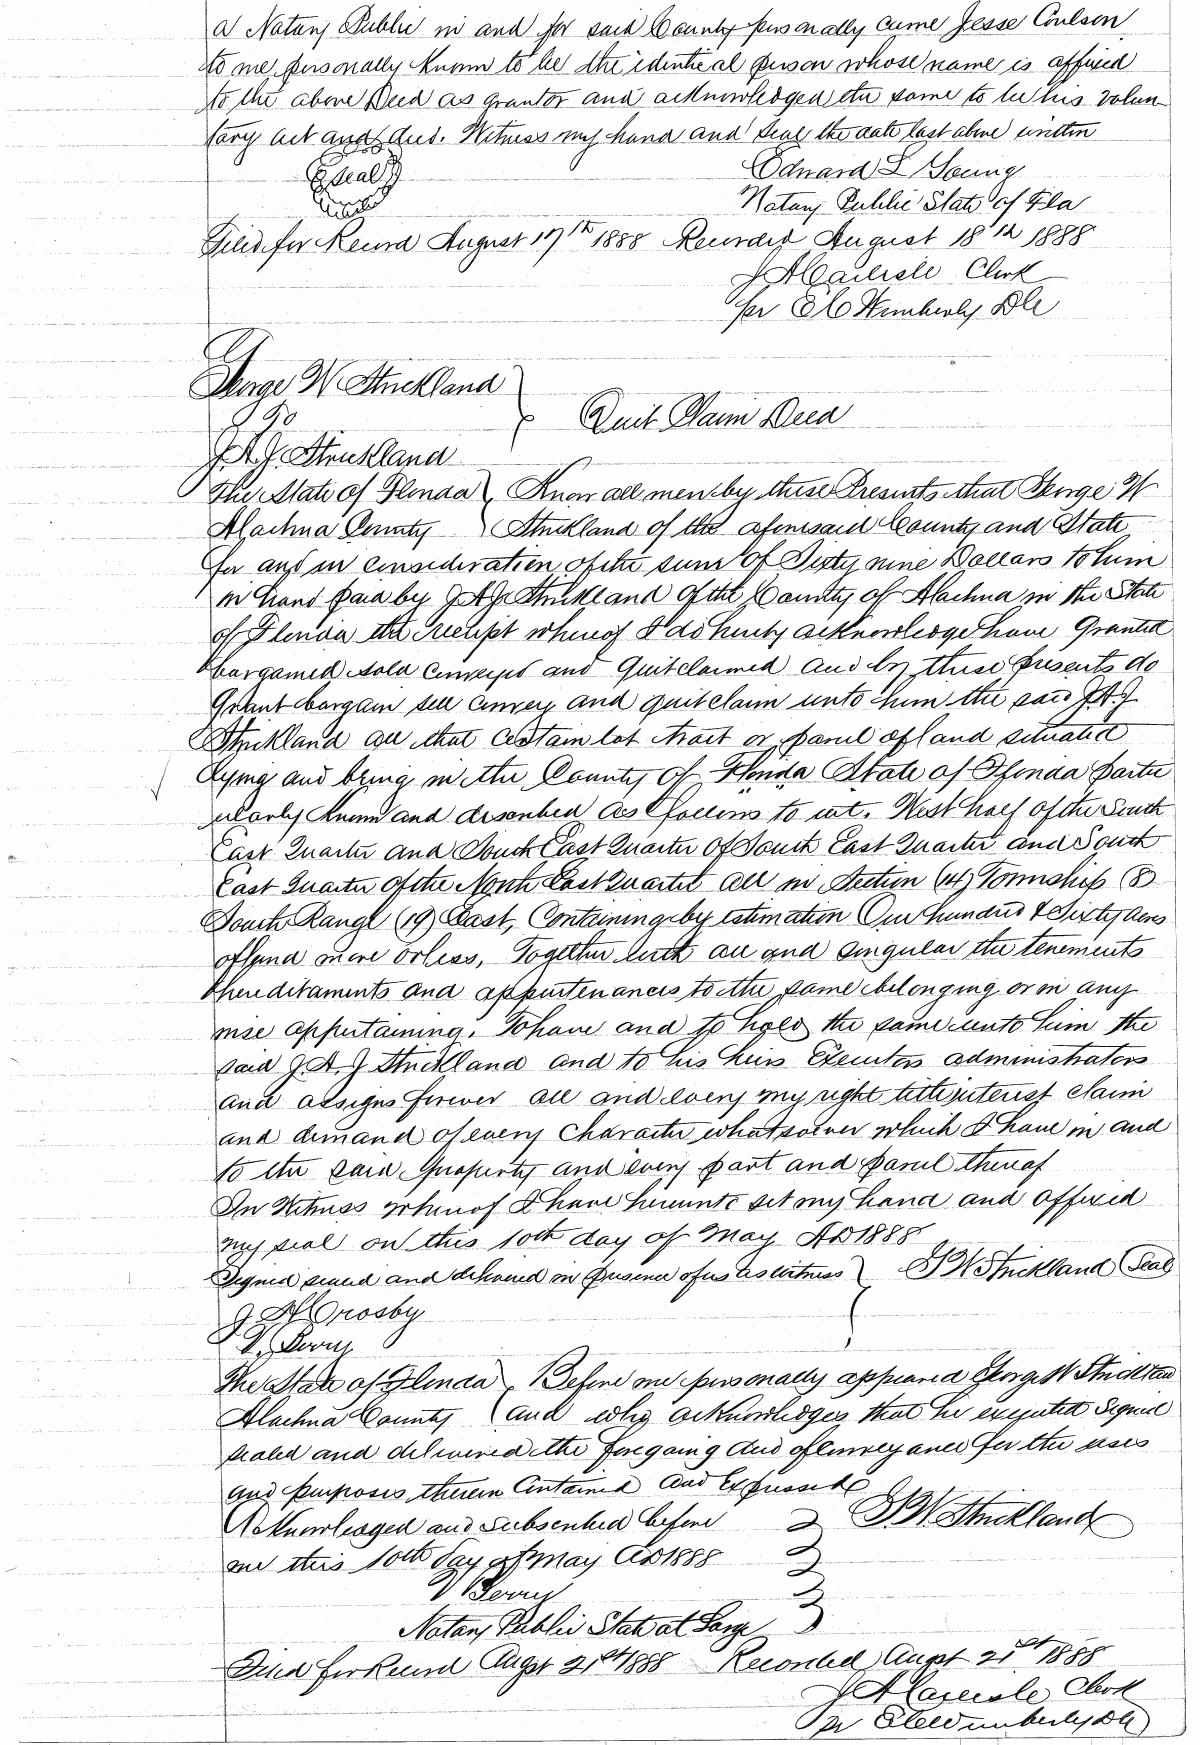 a Notary Public in and for said County personally came Jesse Coulson
to me personally known to be the identical person whose name is affixed
to the above Deed as grantor and acknowledged the same to be his volun
tary act and deed. Witness my hand and seal the date last above written
Seal Edward L Young
Notary Public State of Fla
Filed for Record August 17th 1888 Recorded August 18th 1888
J A Carlisle Clerk
per Wimberly DC
George W Strickland
To Quit Claim Deed
J.A.J. Strickland
The State of Florida Know all men by these Presents that George W
Alachua County Strickland of the aforesaid County and State
for and in consideration of the sum of Sixty nine Dollars to him
in hand paid by J.A.J. Strickland of the County of Alachua in the State
of Florida the receipt whereof I do hereby acknowledge have Granted
bargained sold conveyed and Quitclaimed and by these presents do
Grant bargain sell convey and quitclaim unto him the said J.A.J
Strickland all that certain lot tract or parcel of land situated
lying and being in the County of Florida State of Florida partic
ularly known and described as follows to wit. West half of the South
East Quarter and South East Quarter of South East Quarter and South
East Quarter of the North East Quarter all in Section (14) Township (8)
South Range (19) East, Containing by estimation One hundred & Sixty Acres
of land more or less, Together with all and singular the tenements
hereditaments and appurtenances to the same belonging or in any
wise appertaining. To have and to hold the same unto him the
said J.A.J Strickland and to his heirs Executors administrators
and assigns forever all and every my right title interest claim
and demand of every Character whatsoever which I have in and
to the said property and every part and parcel thereof
In Witness whereof I have hereunto set my hand and affixed
my seal on this 10th day of May AD 1888
Signed sealed and delivered in presence of us as witness G W Strickland Seal
J H Crosby
The State of Florida Before me personally appeared George W Strickland
Alachua County and who acknowledges that he executed Signed
sealed and delivered the foregoing deed of conveyance for the uses
and purposes therein contained and Expressed
Acknowledged and Subscribed before G W Strickland
me this 10th Day of May AD 1888
Notary Public State at Large
Filed for Record Augst 21st 1888 Recorded Augst 21st 1888
J A Carlisle Clerk
per Wimberly DC